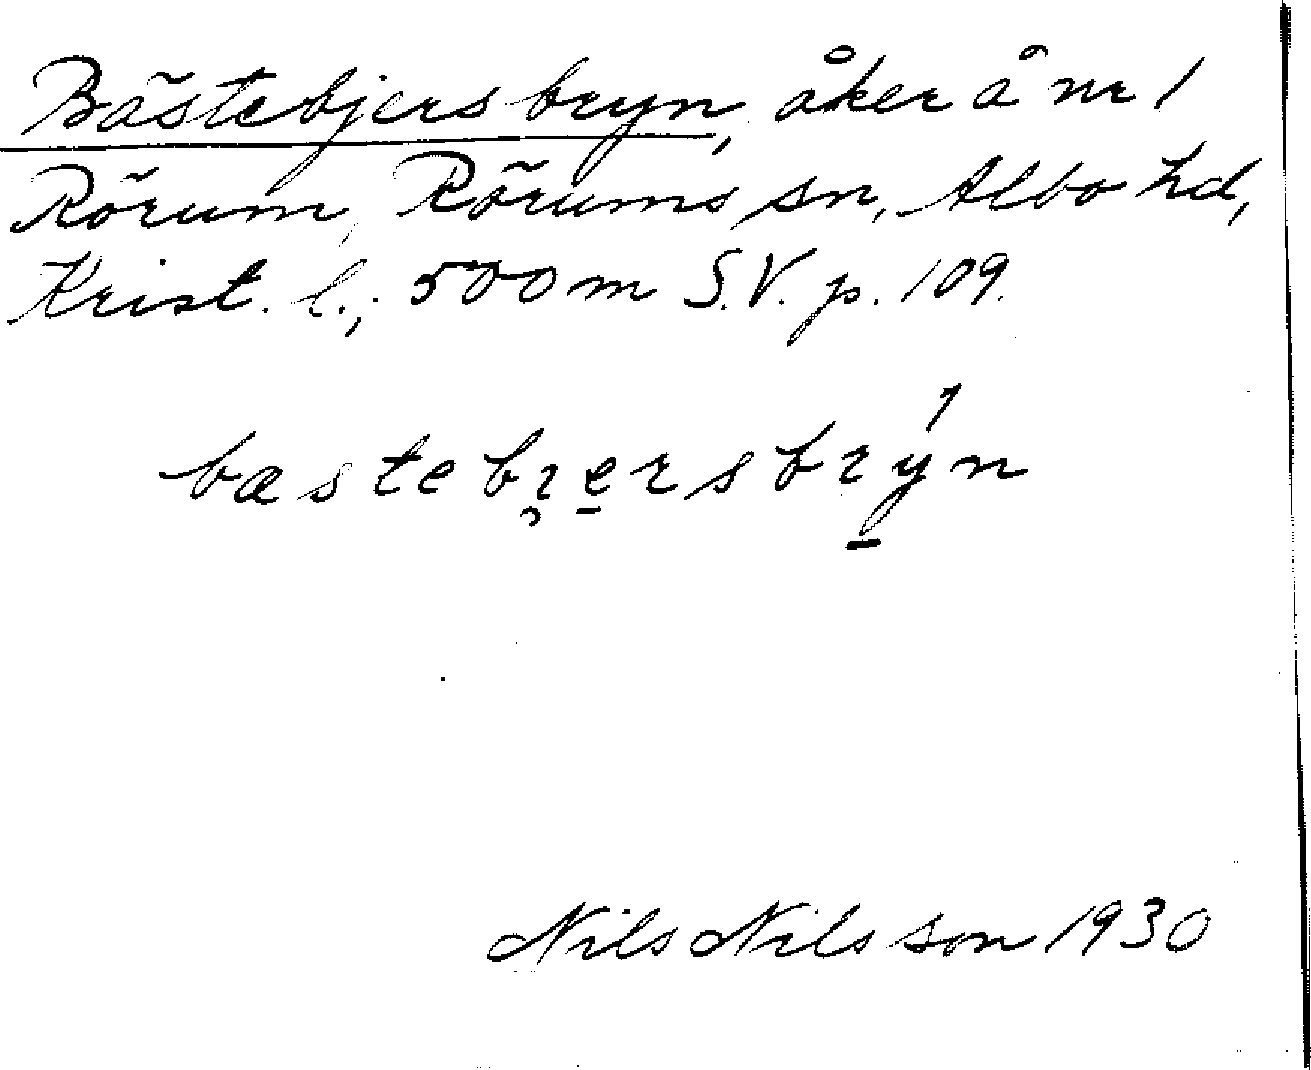 Bästebjersbryn, åker å nr 1
Rörum, Rörums sn, Albo hd,
Krist. l.; 500 m S.V. p. 109.
bastebı̨e̠rsbrý̠n
Nils Nilsson 1930